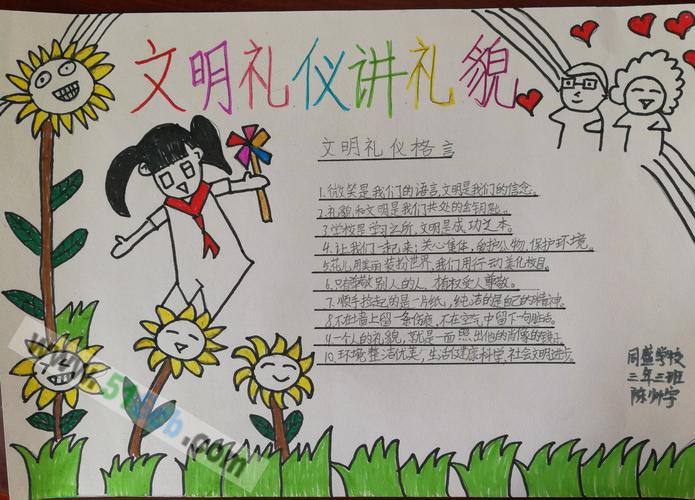 文明礼仪讲礼貌
文明礼仪格言
1.微笑是我们的语言文明是我们的信念。
2.礼貌和文明是我们共处的金钥匙。
3.学校是学习之所,文明是成功之本。
4.让我们一起来:关心集体,爱护公物,保护环境。
5.花儿用美丽装扮世界,我们用行动美化校园。
6.只有尊敬别人的人,才有权受人尊敬。
7.顺手捡起的是一片纸,纯洁的是自己的精神。
8.不在墙上留一条伤痕,不在空气中留下一句脏话。
9.一个人的礼貌,就是一面照出他的肖像的镜子
10.环境整洁优美,生活健康科学,社会文明进步。
同盛学校
三年三班